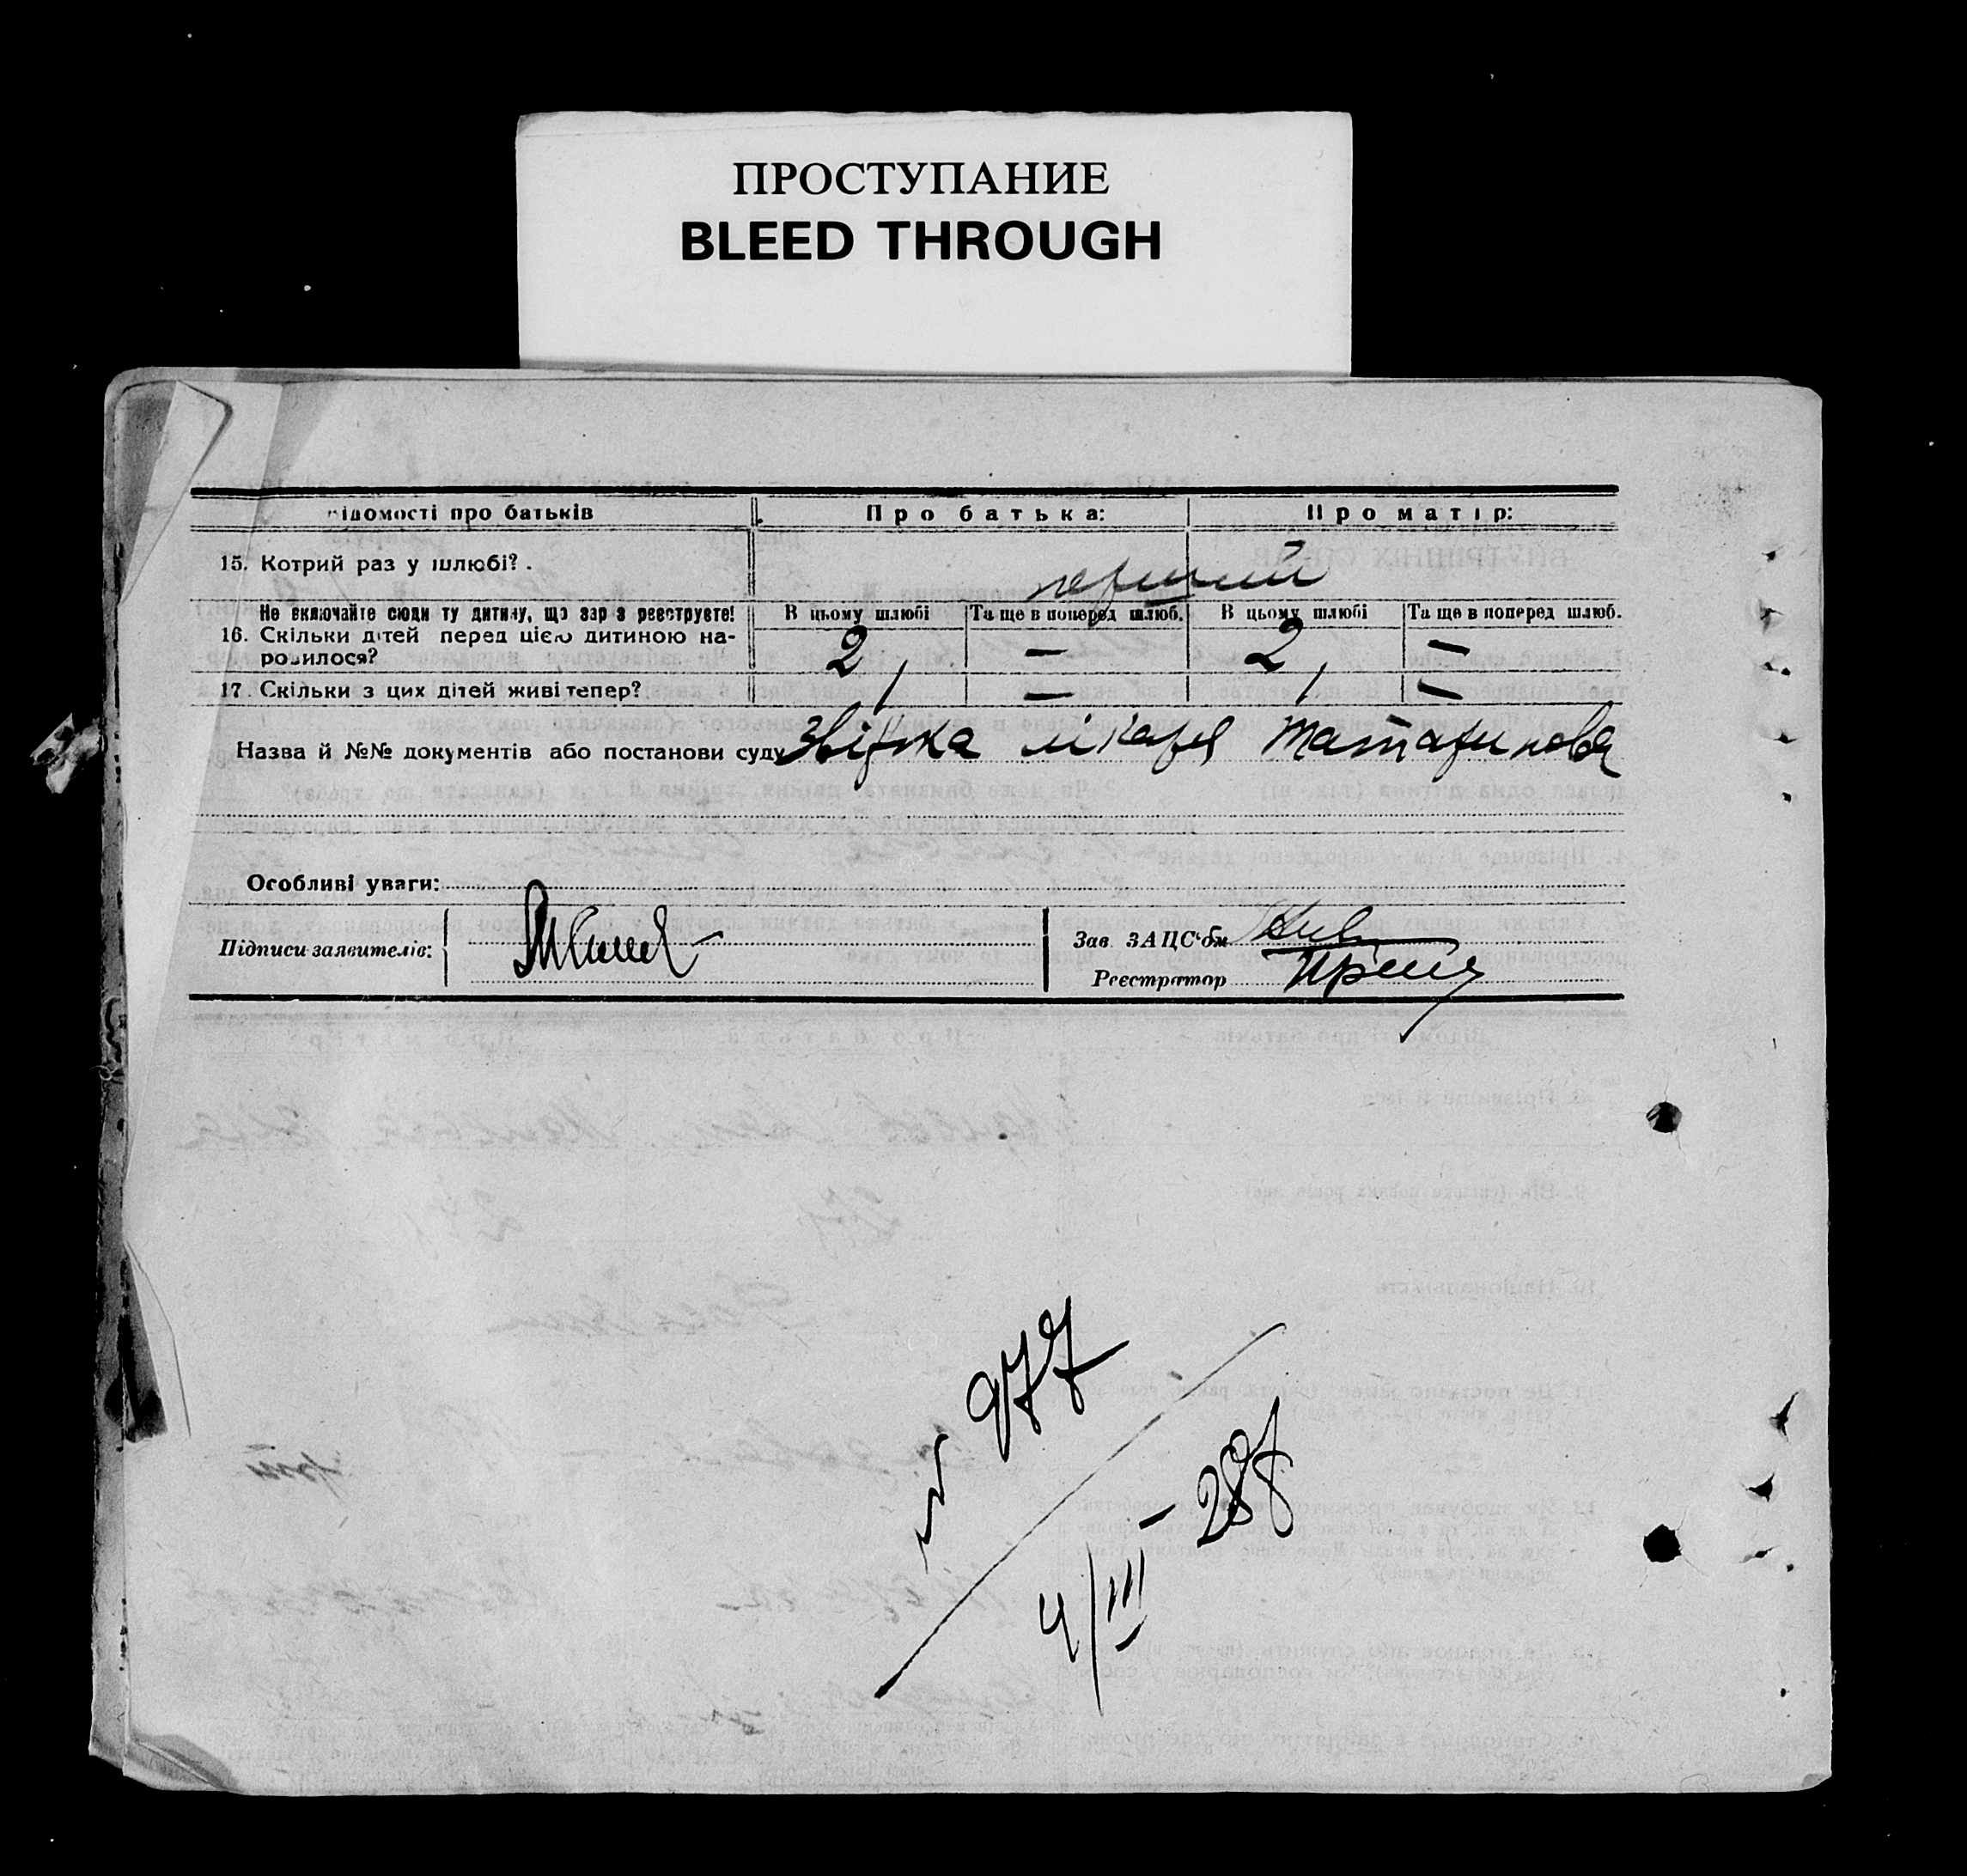 ПРОСТУПАНИЕ
BLEED THROUGH
ідомості про батьків Про батька: Про матір:
15. Котрий раз у шлюбі? . перший
Не включайте сюди ту дитину, що зараз реєструєте! В цьому шлюбі Та ще в поперед шлюб. В цьому шлюбі Та ще в поперед шлюб.
16. Скільки дітей перед цією дитиною на-
родилося? 2 — 2 —
17. Скільки з цих дітей живі тепер? 1 — 1 —
Назва й №№ документів або постанови суду Звістка лікаря Татаринова
Особливі уваги:
Підписи заявителів:
Зав. ЗАЦС'ом
Реєстратор
№ 977
4/III - 28